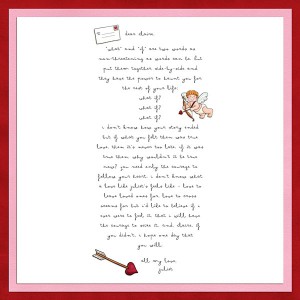 dear claire,
"what" and "if" are two words as
non-threatening as words can be. but
put them together side-by-side and
they have the power to haunt you for
the rest of your life:
what if?
what if?
what if?
i don't know how your story ended
but if what you felt then was true
love, then it's never too late. if it was
true then, why wouldn't it be true
now? you need only the courage to
follow your heart. i don't know what
a love like juliet's feels like - love to
leave loved ones for, love to cross
oceans for but i'd like to believe if i
ever were to feel it, that i will have
the courage to seize it. and, claire, if
you didn't, i hope one day that
you will.
all my love,
juliet